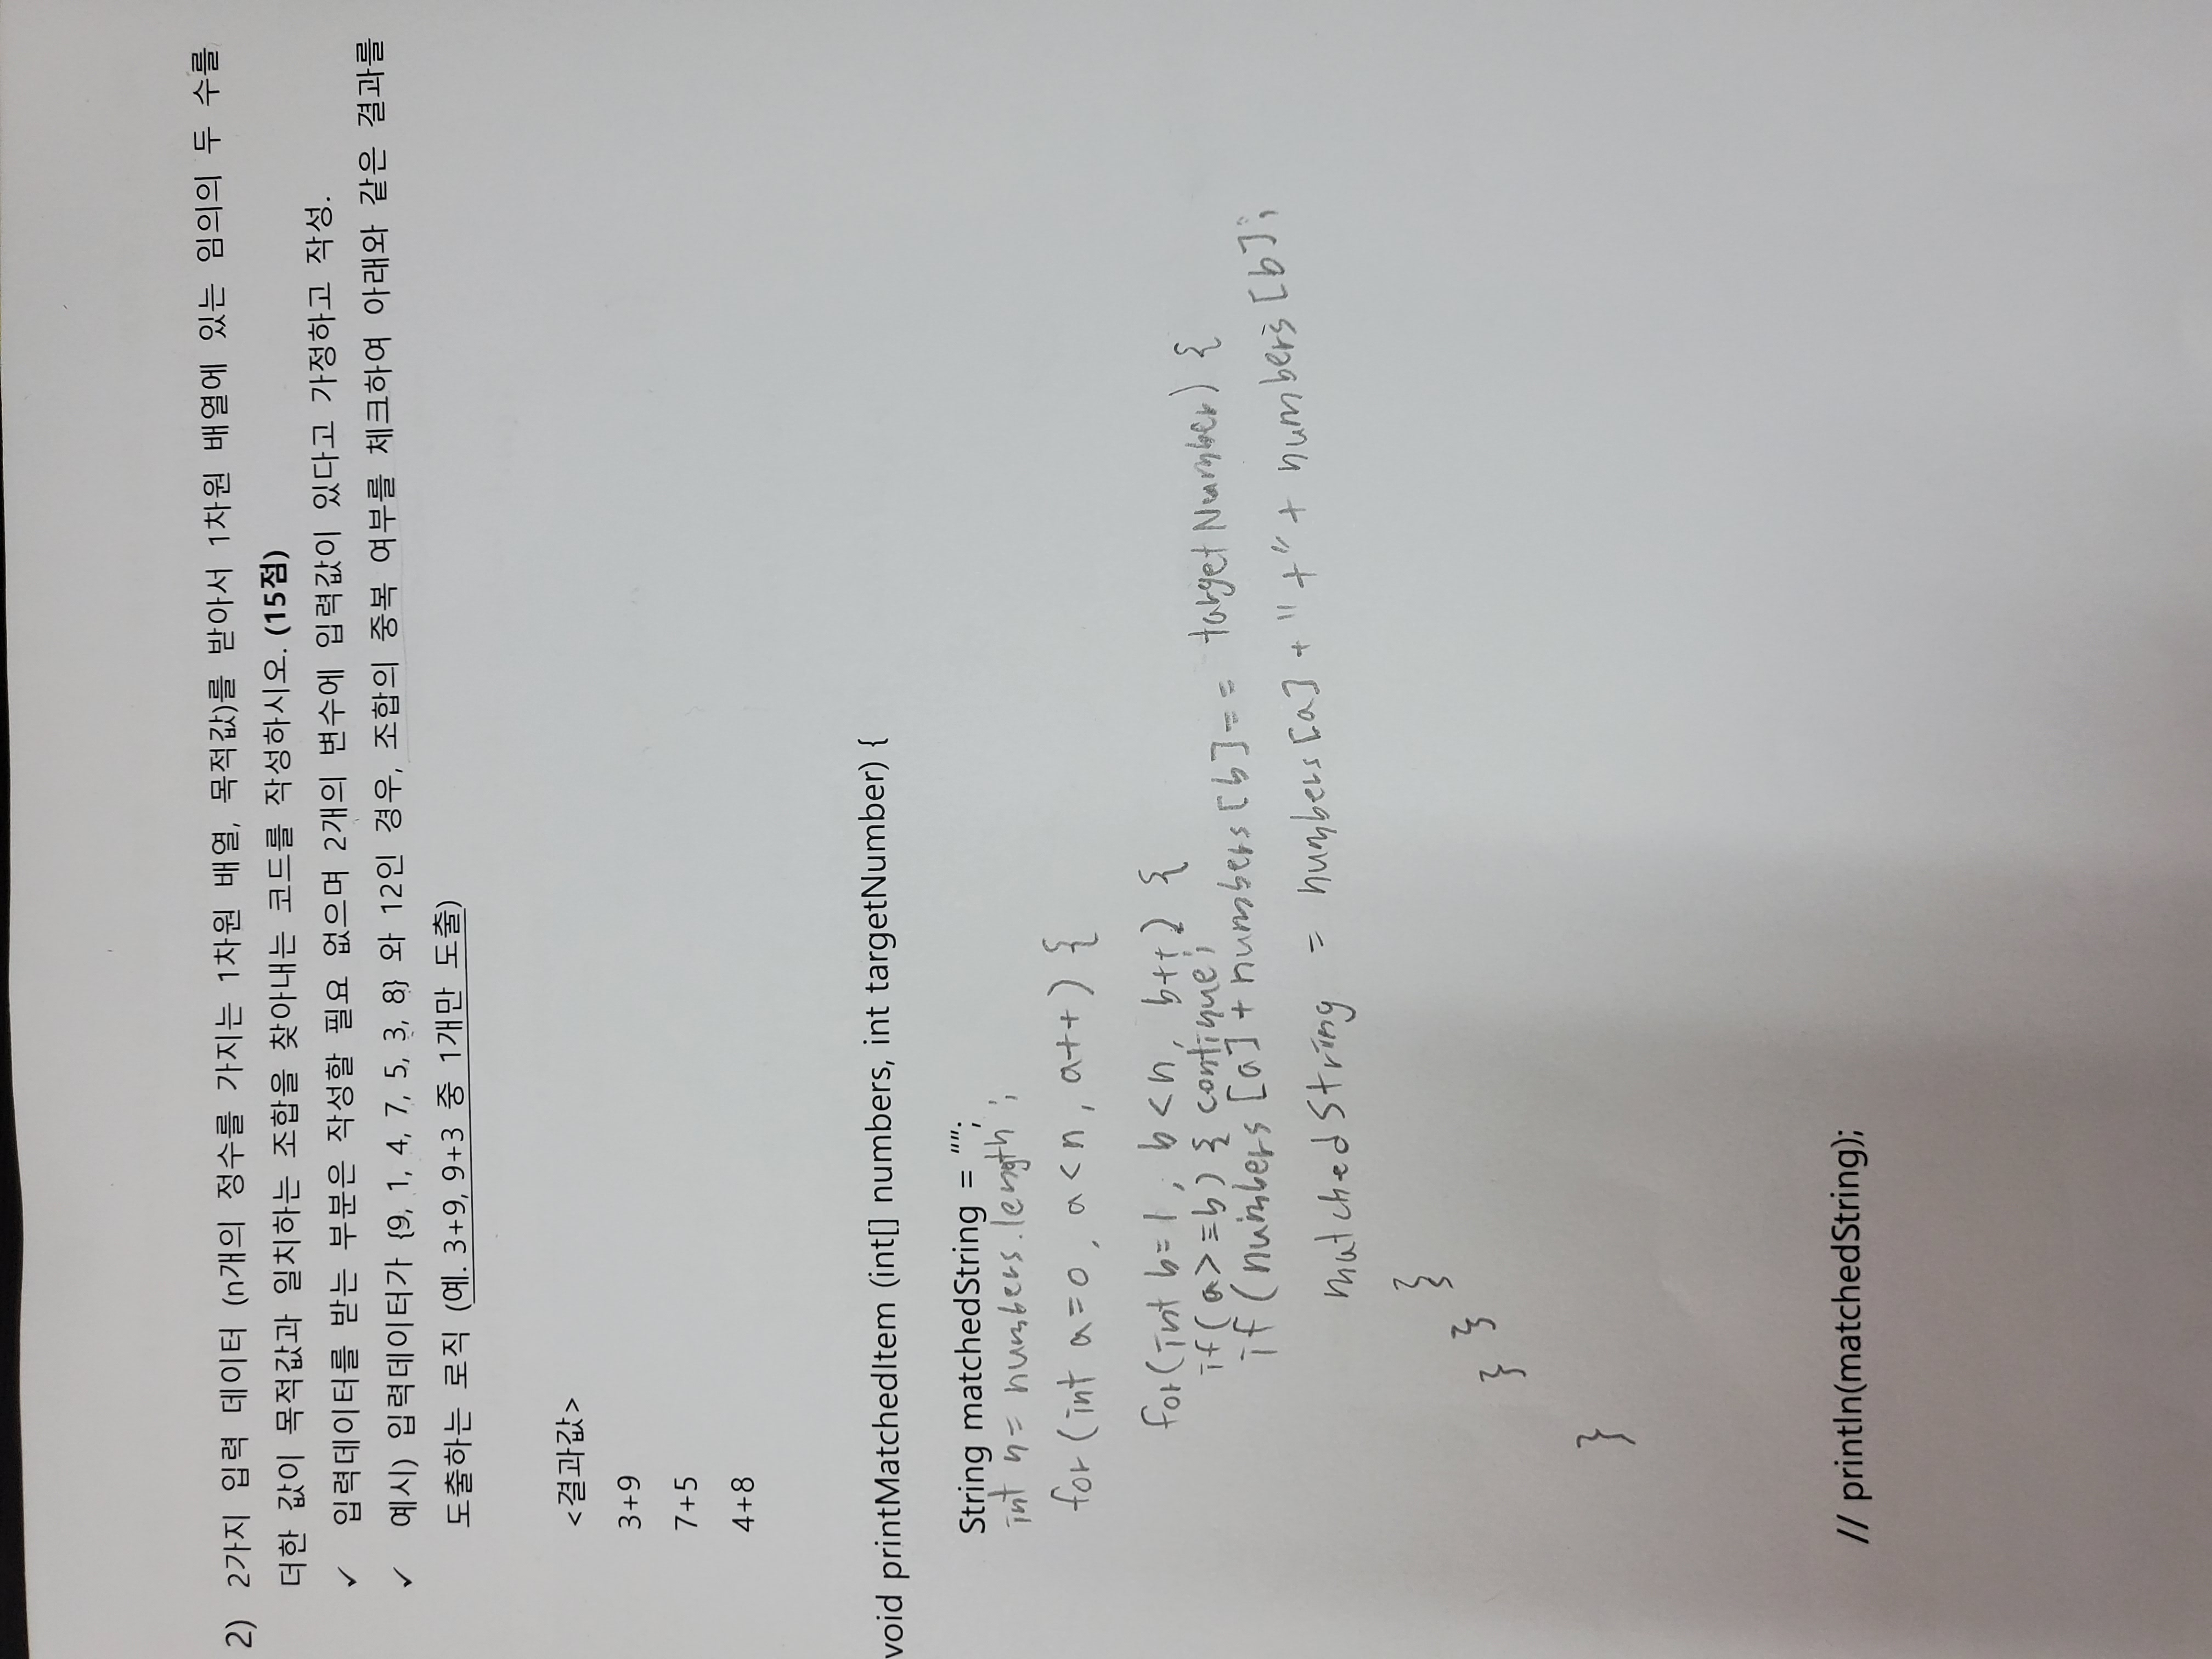 2) 2가지 입력 데이터 (n개의 정수를 가지는 1차원 배열, 목적값)를 받아서 1차원 배열에 있는 임의의 두 수를
더한 값이 목적값과 일치하는 조합을 찾아내는 코드를 작성하시오. (15점)
✓ 입력데이터를 받는 부분은 작성할 필요 없으며 2개의 변수에 입력값이 있다고 가정하고 작성.
✓ 예시) 입력데이터가 {9, 1, 4, 7, 5, 3, 8} 와 12인 경우, 조합의 중복 여부를 체크하여 아래와 같은 결과를
도출하는 로직 (예. 3+9, 9+3 중 1개만 도출)
<결과값>
3+9
7+5
4+8
void printMatchedItem (int[] numbers, int targetNumber) {
String matchedString = “”;
int n= numbers.length ;
for (int a=0, a<n, a++) {
for(int b=1, b<n, b++) {
if(a>=b) { continue;
if (numbers [a]+numbers [b]== targetNumber) {
matchedString = numbers[a]+"+"+ numbers[b];
}
}
}
}
// println(matchedString);